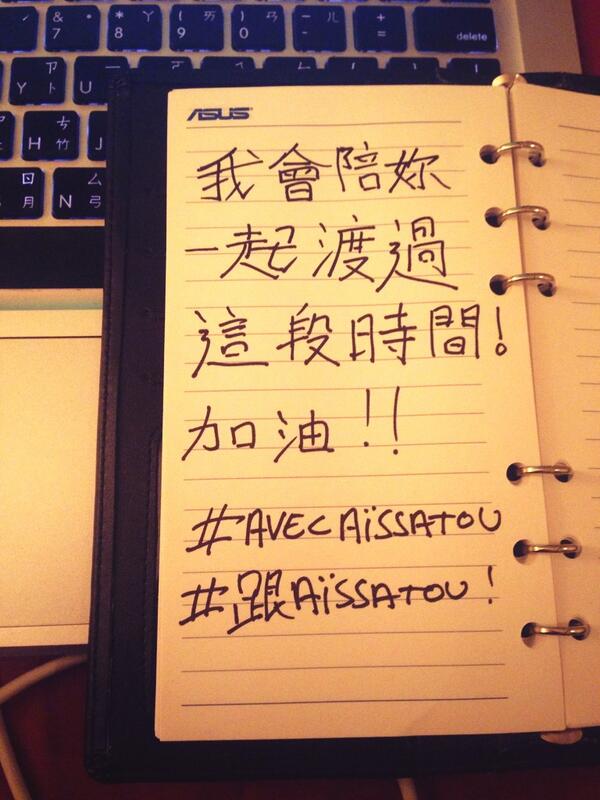 & 7 ㄚ
* 8 ㄧ
( 9 ㄞ
) 0 ㄢ
- ㄦ
+ =
delete
Y
U
H ㄘ 竹
J
N ㄙ 弓
ㄖ 月
ASUS
我會陪妳
一起渡過
這段時間!
加油!!
#AVECAÏSSATOU
#跟AÏSSATOU!